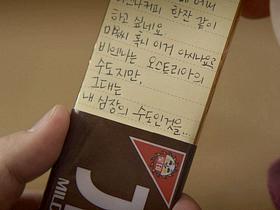 비엔나커피 한잔 같이
하고 싶네요
혹시 이거 아시나요?
비엔나는 오스트리아의
수도지만,
그대는
내 심장의 수도인것을..
MIL